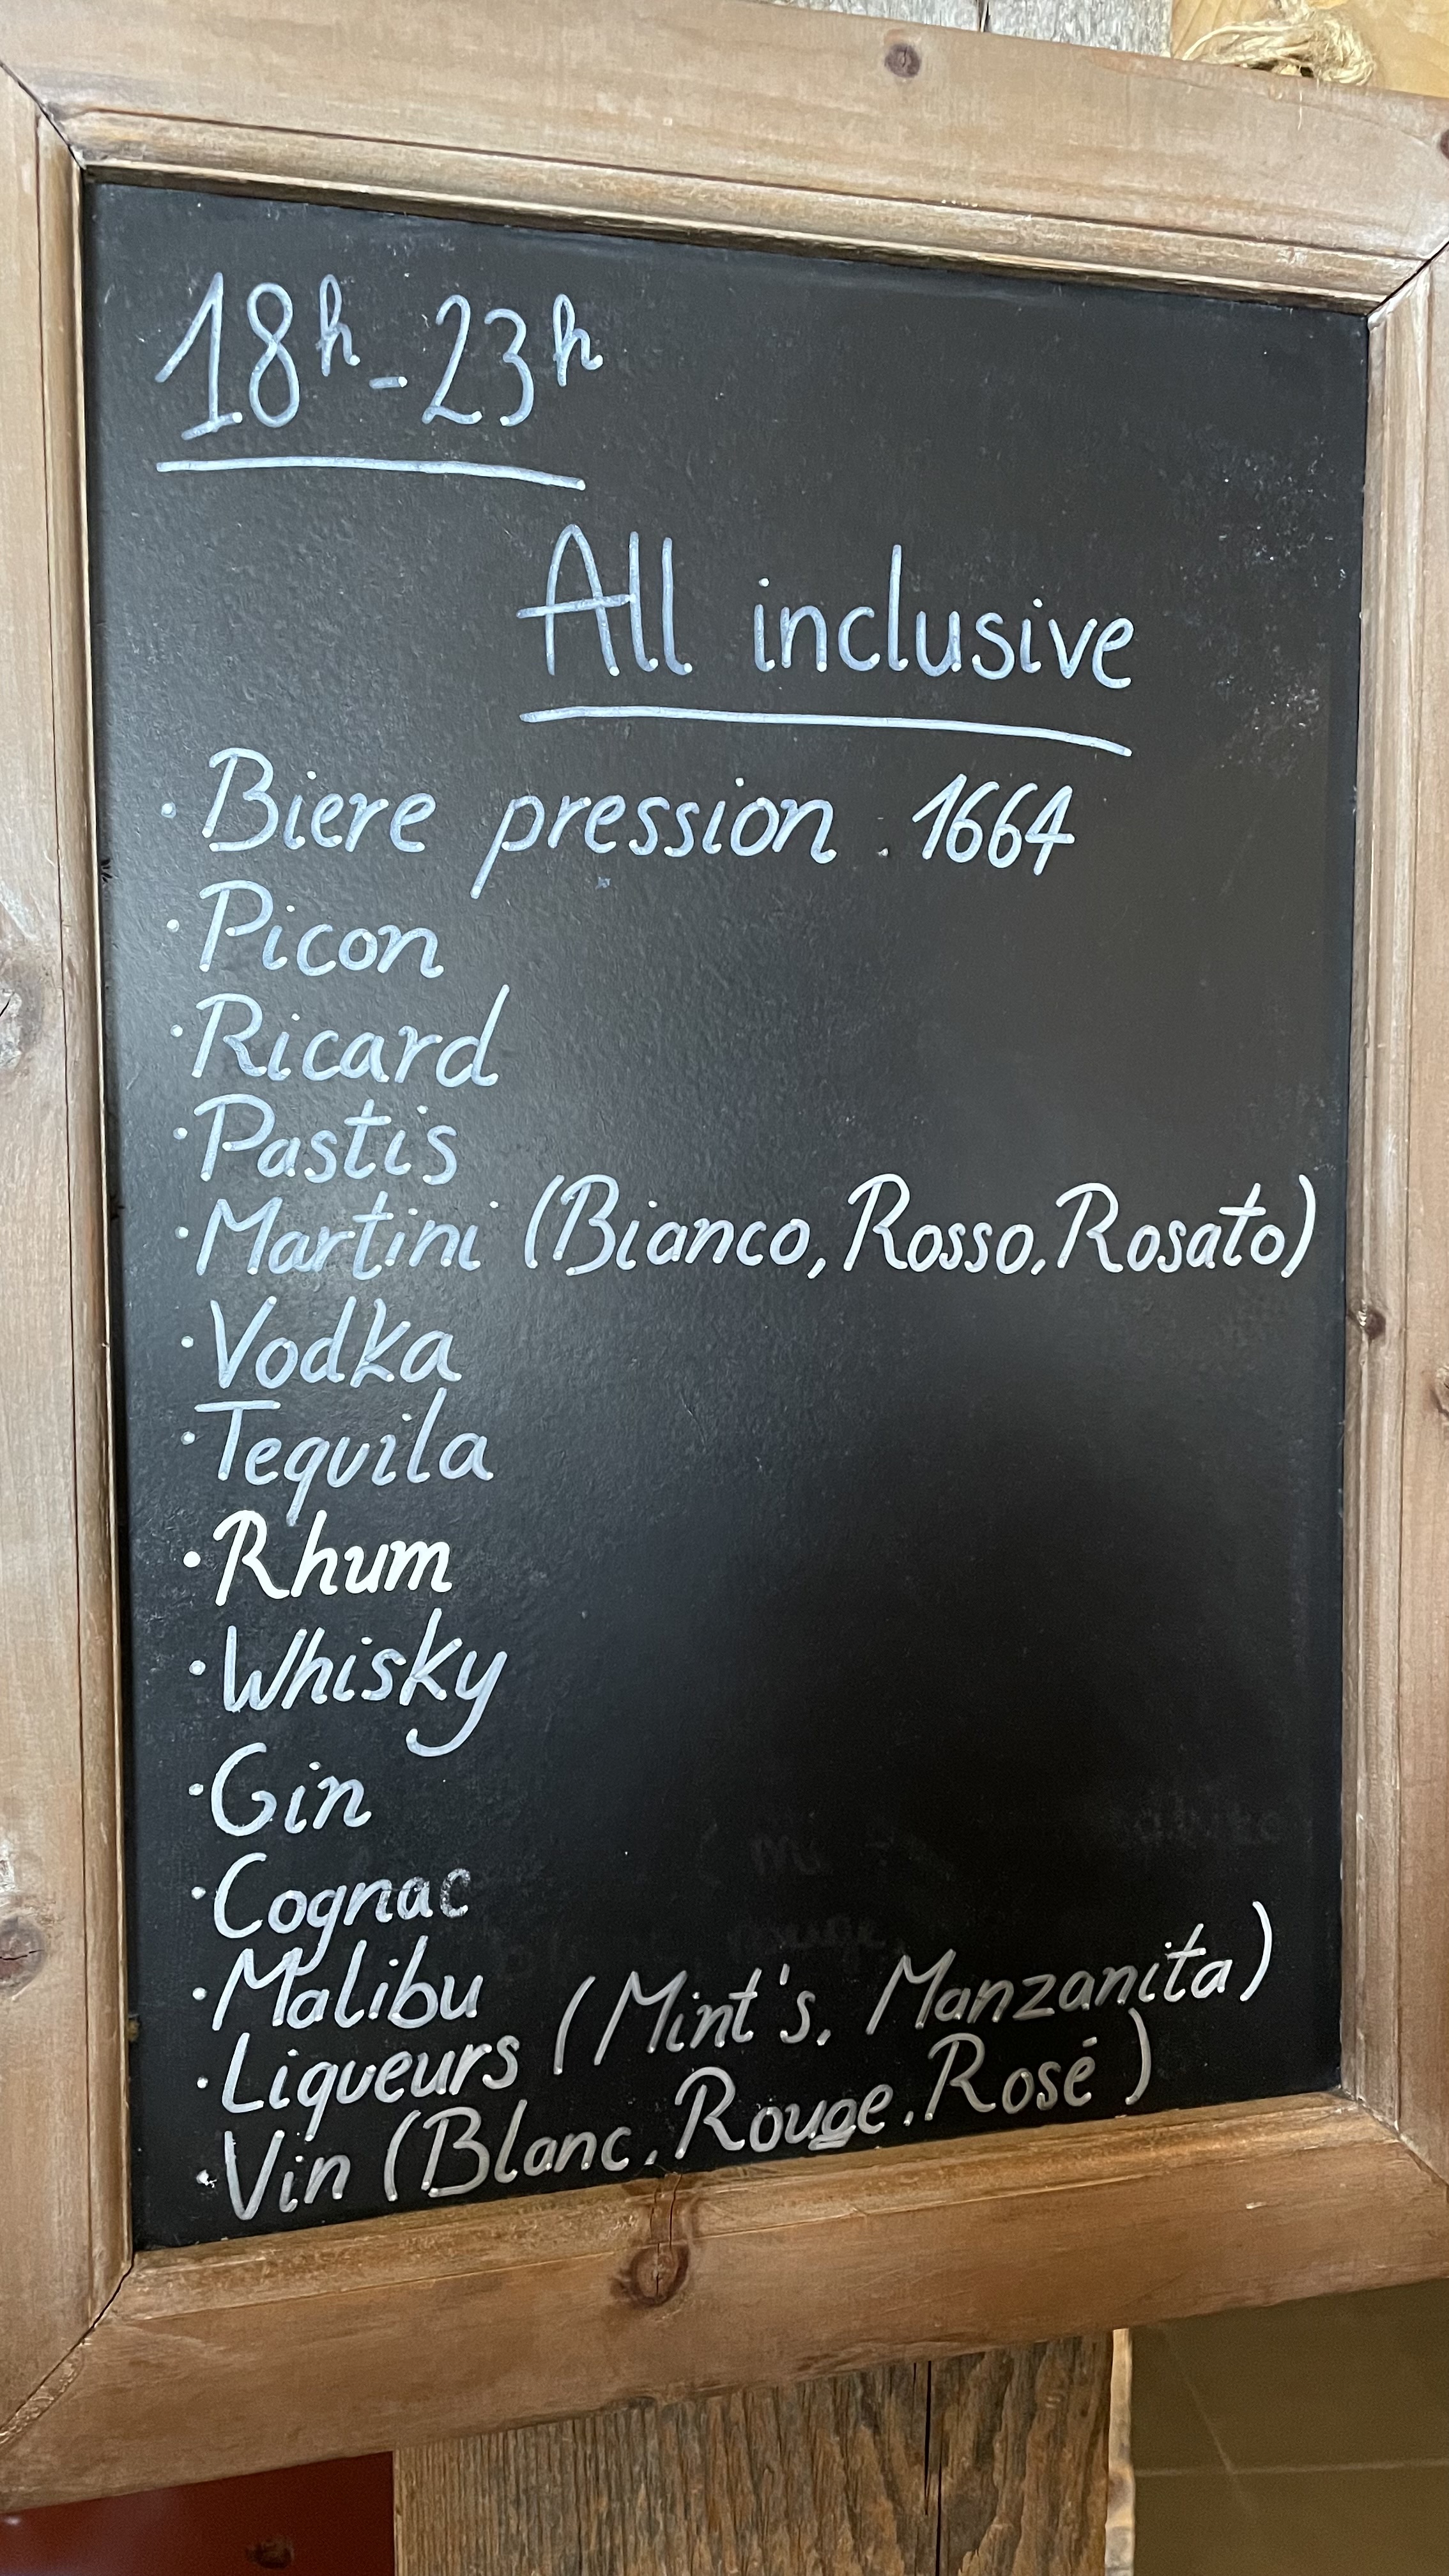 18h-23h
All inclusive
· Biere pression . 1664
· Picon
· Ricard
· Pastis
· Martini (Bianco, Rosso, Rosato)
· Vodka
· Tequila
· Rhum
· Whisky
· Gin
· Cognac
· Malibu
· Liqueurs (Mint's, Manzanita)
· Vin (Blanc, Rouge, Rosé)